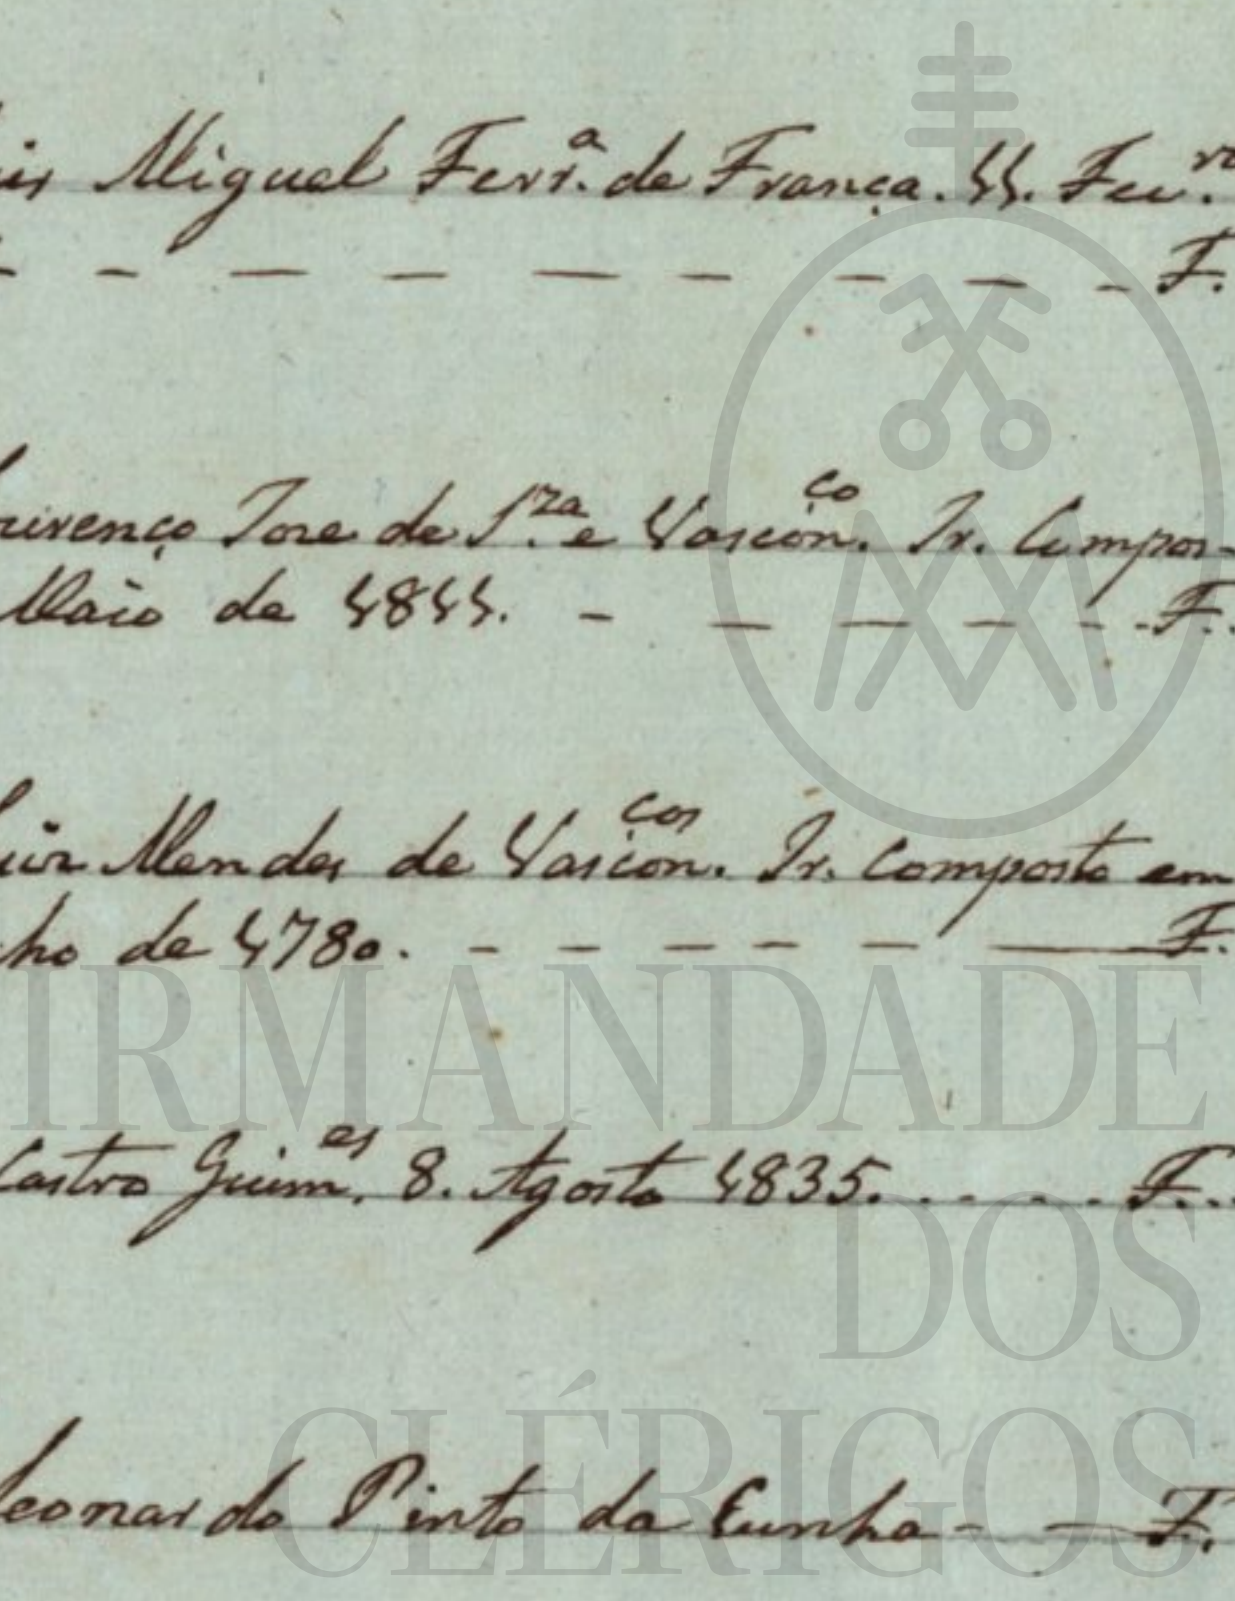 uis Miguel Ferr.ª de França. 11. Fev.ro
- - - - - - - - - F.
ourenço Joze de S.za e Vascon.co Ir. Compos-
Maio de 1811. - - - - - - F.
uiz Mendes de Vascon.cos Ir. Composto em
nho de 1780. - - - - - F.
Castro Guim.es 8. Agosto 1835. . . . . . F. .
Leonardo Pinto da Cunha - - F.
IRMANDADE
DOS
CLÉRIGOS